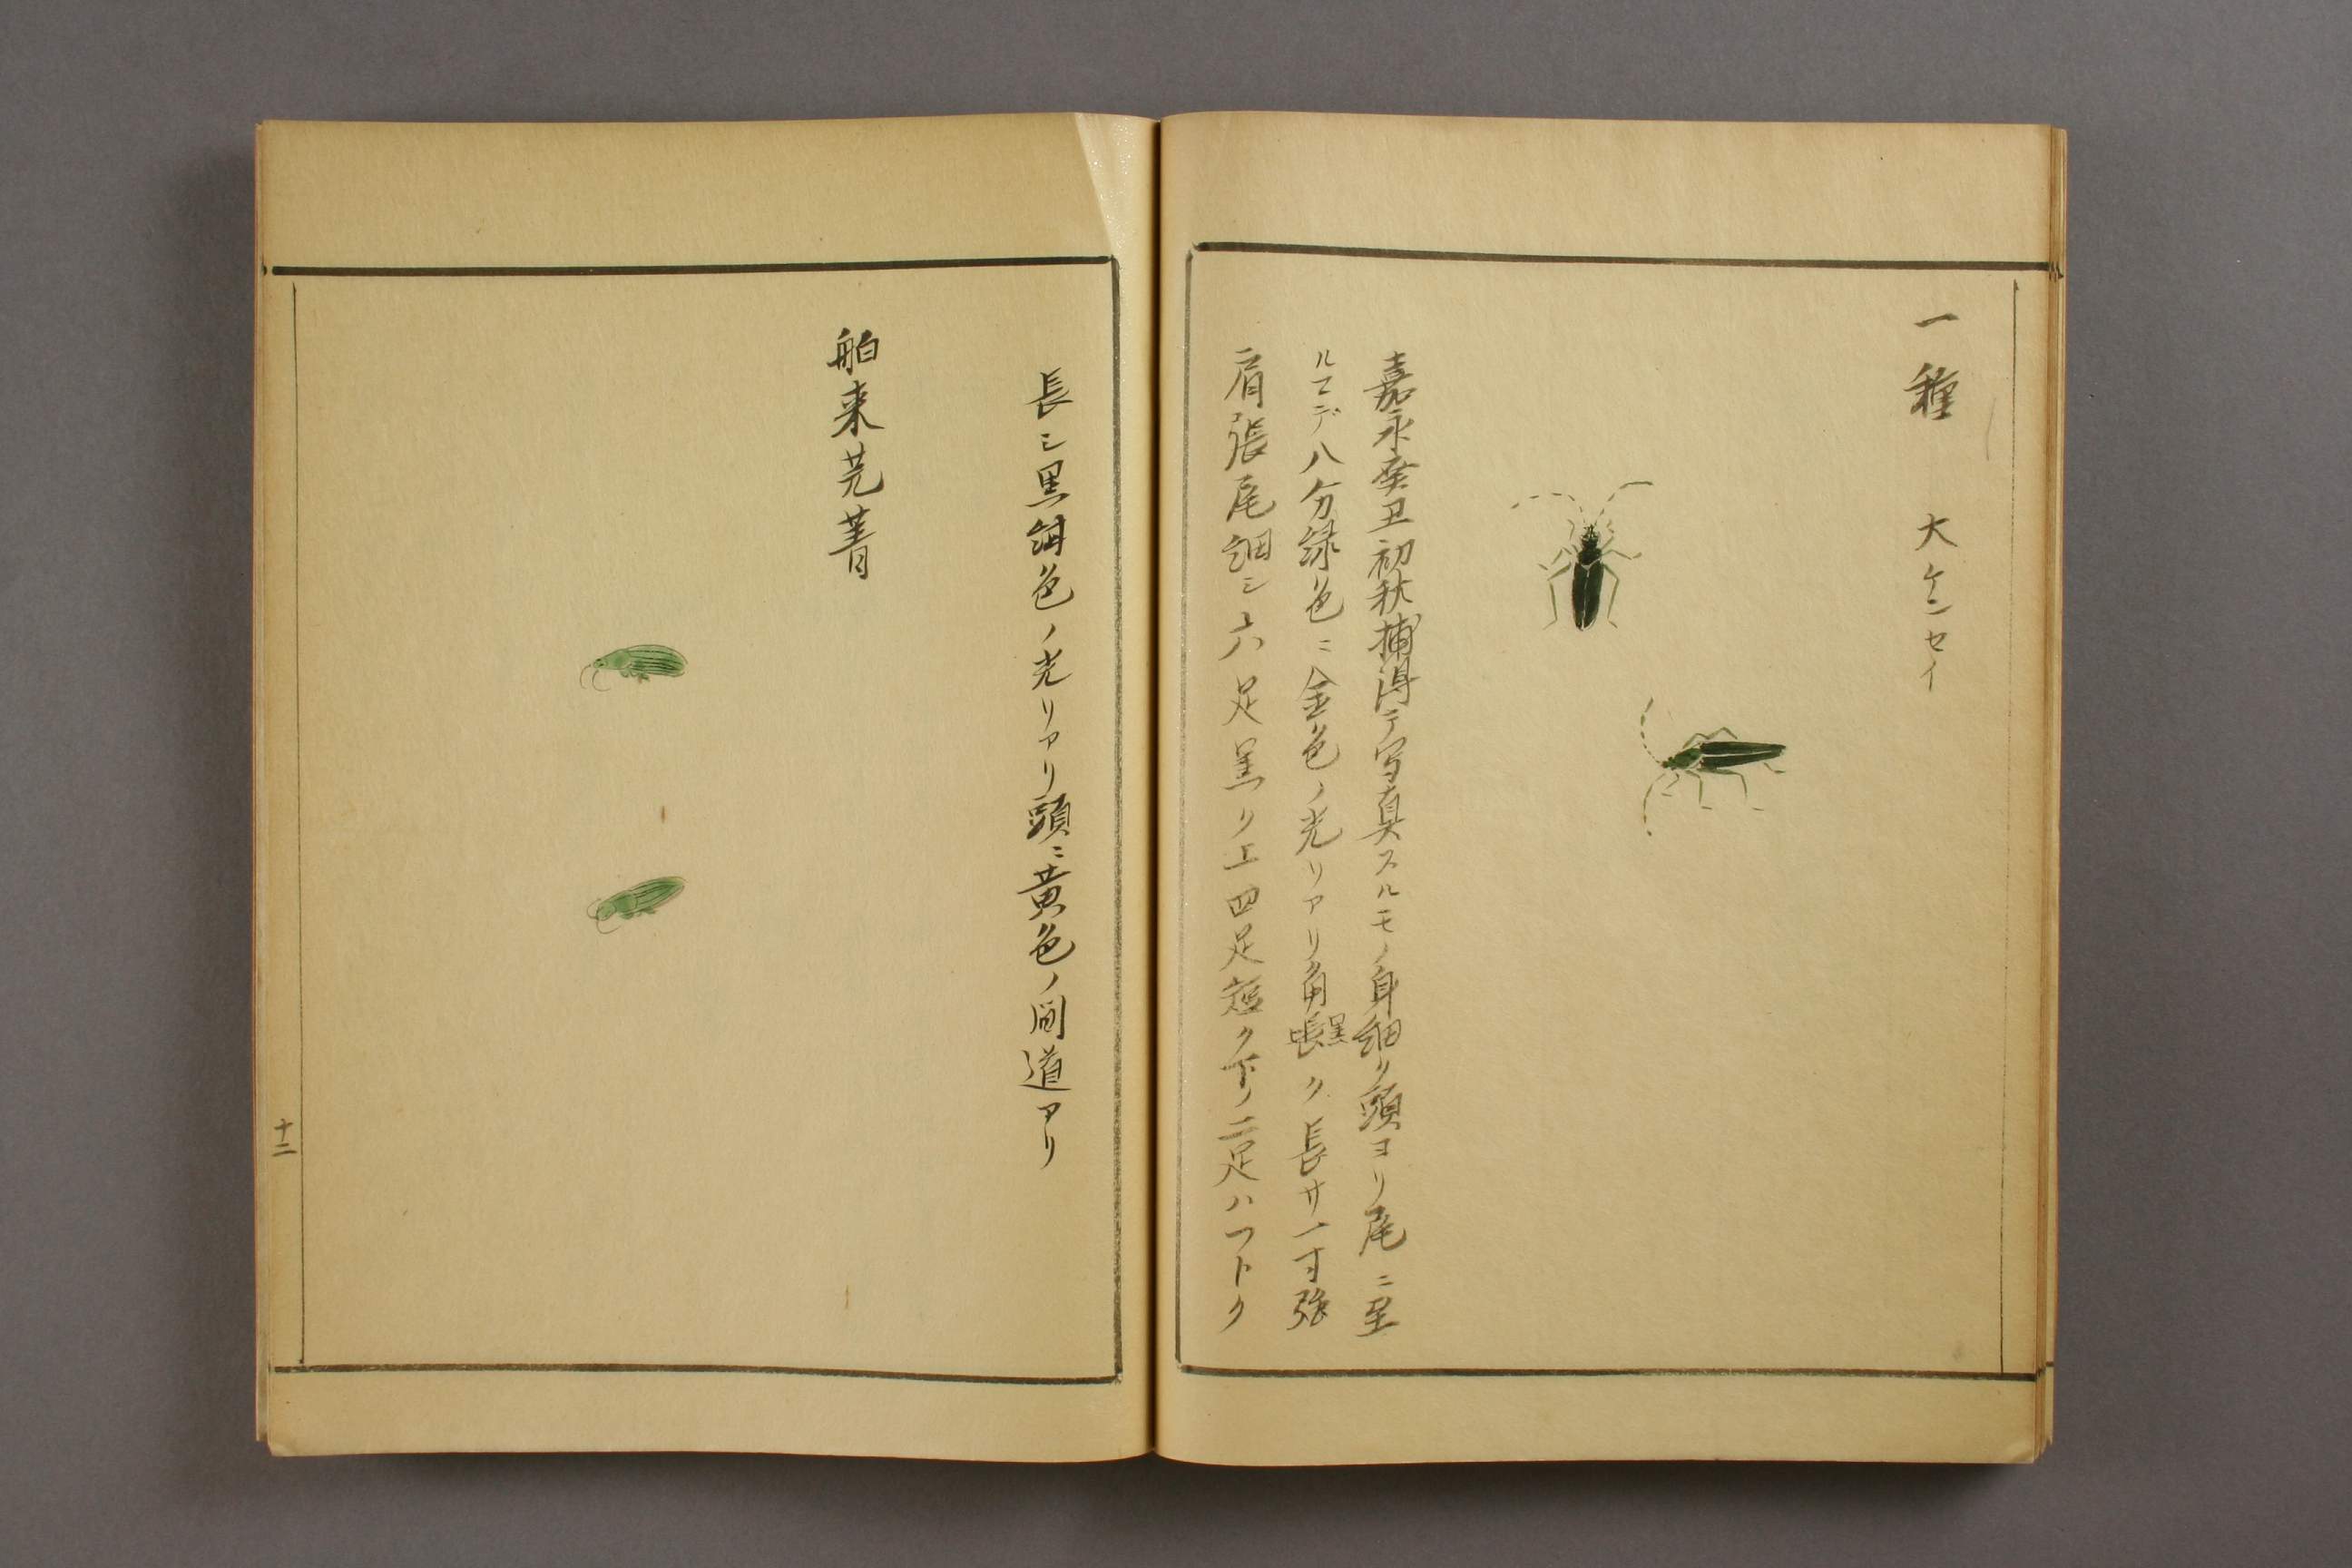 一種　大ケンセイ
嘉永癸丑初秋捕得テ写真スルモノ身細ク頭ヨリ尾ニ至
ルマデ八分緑色ニ金色ノ光リアリ角黒長ク長サ一寸強
ニ肩張尾細シ六足黒ク上四足短ク下リ二足ハフトク
長シ黒紺色ノ光リアリ頭ニ黄色ノ間道アリ
舶来芫菁
十二